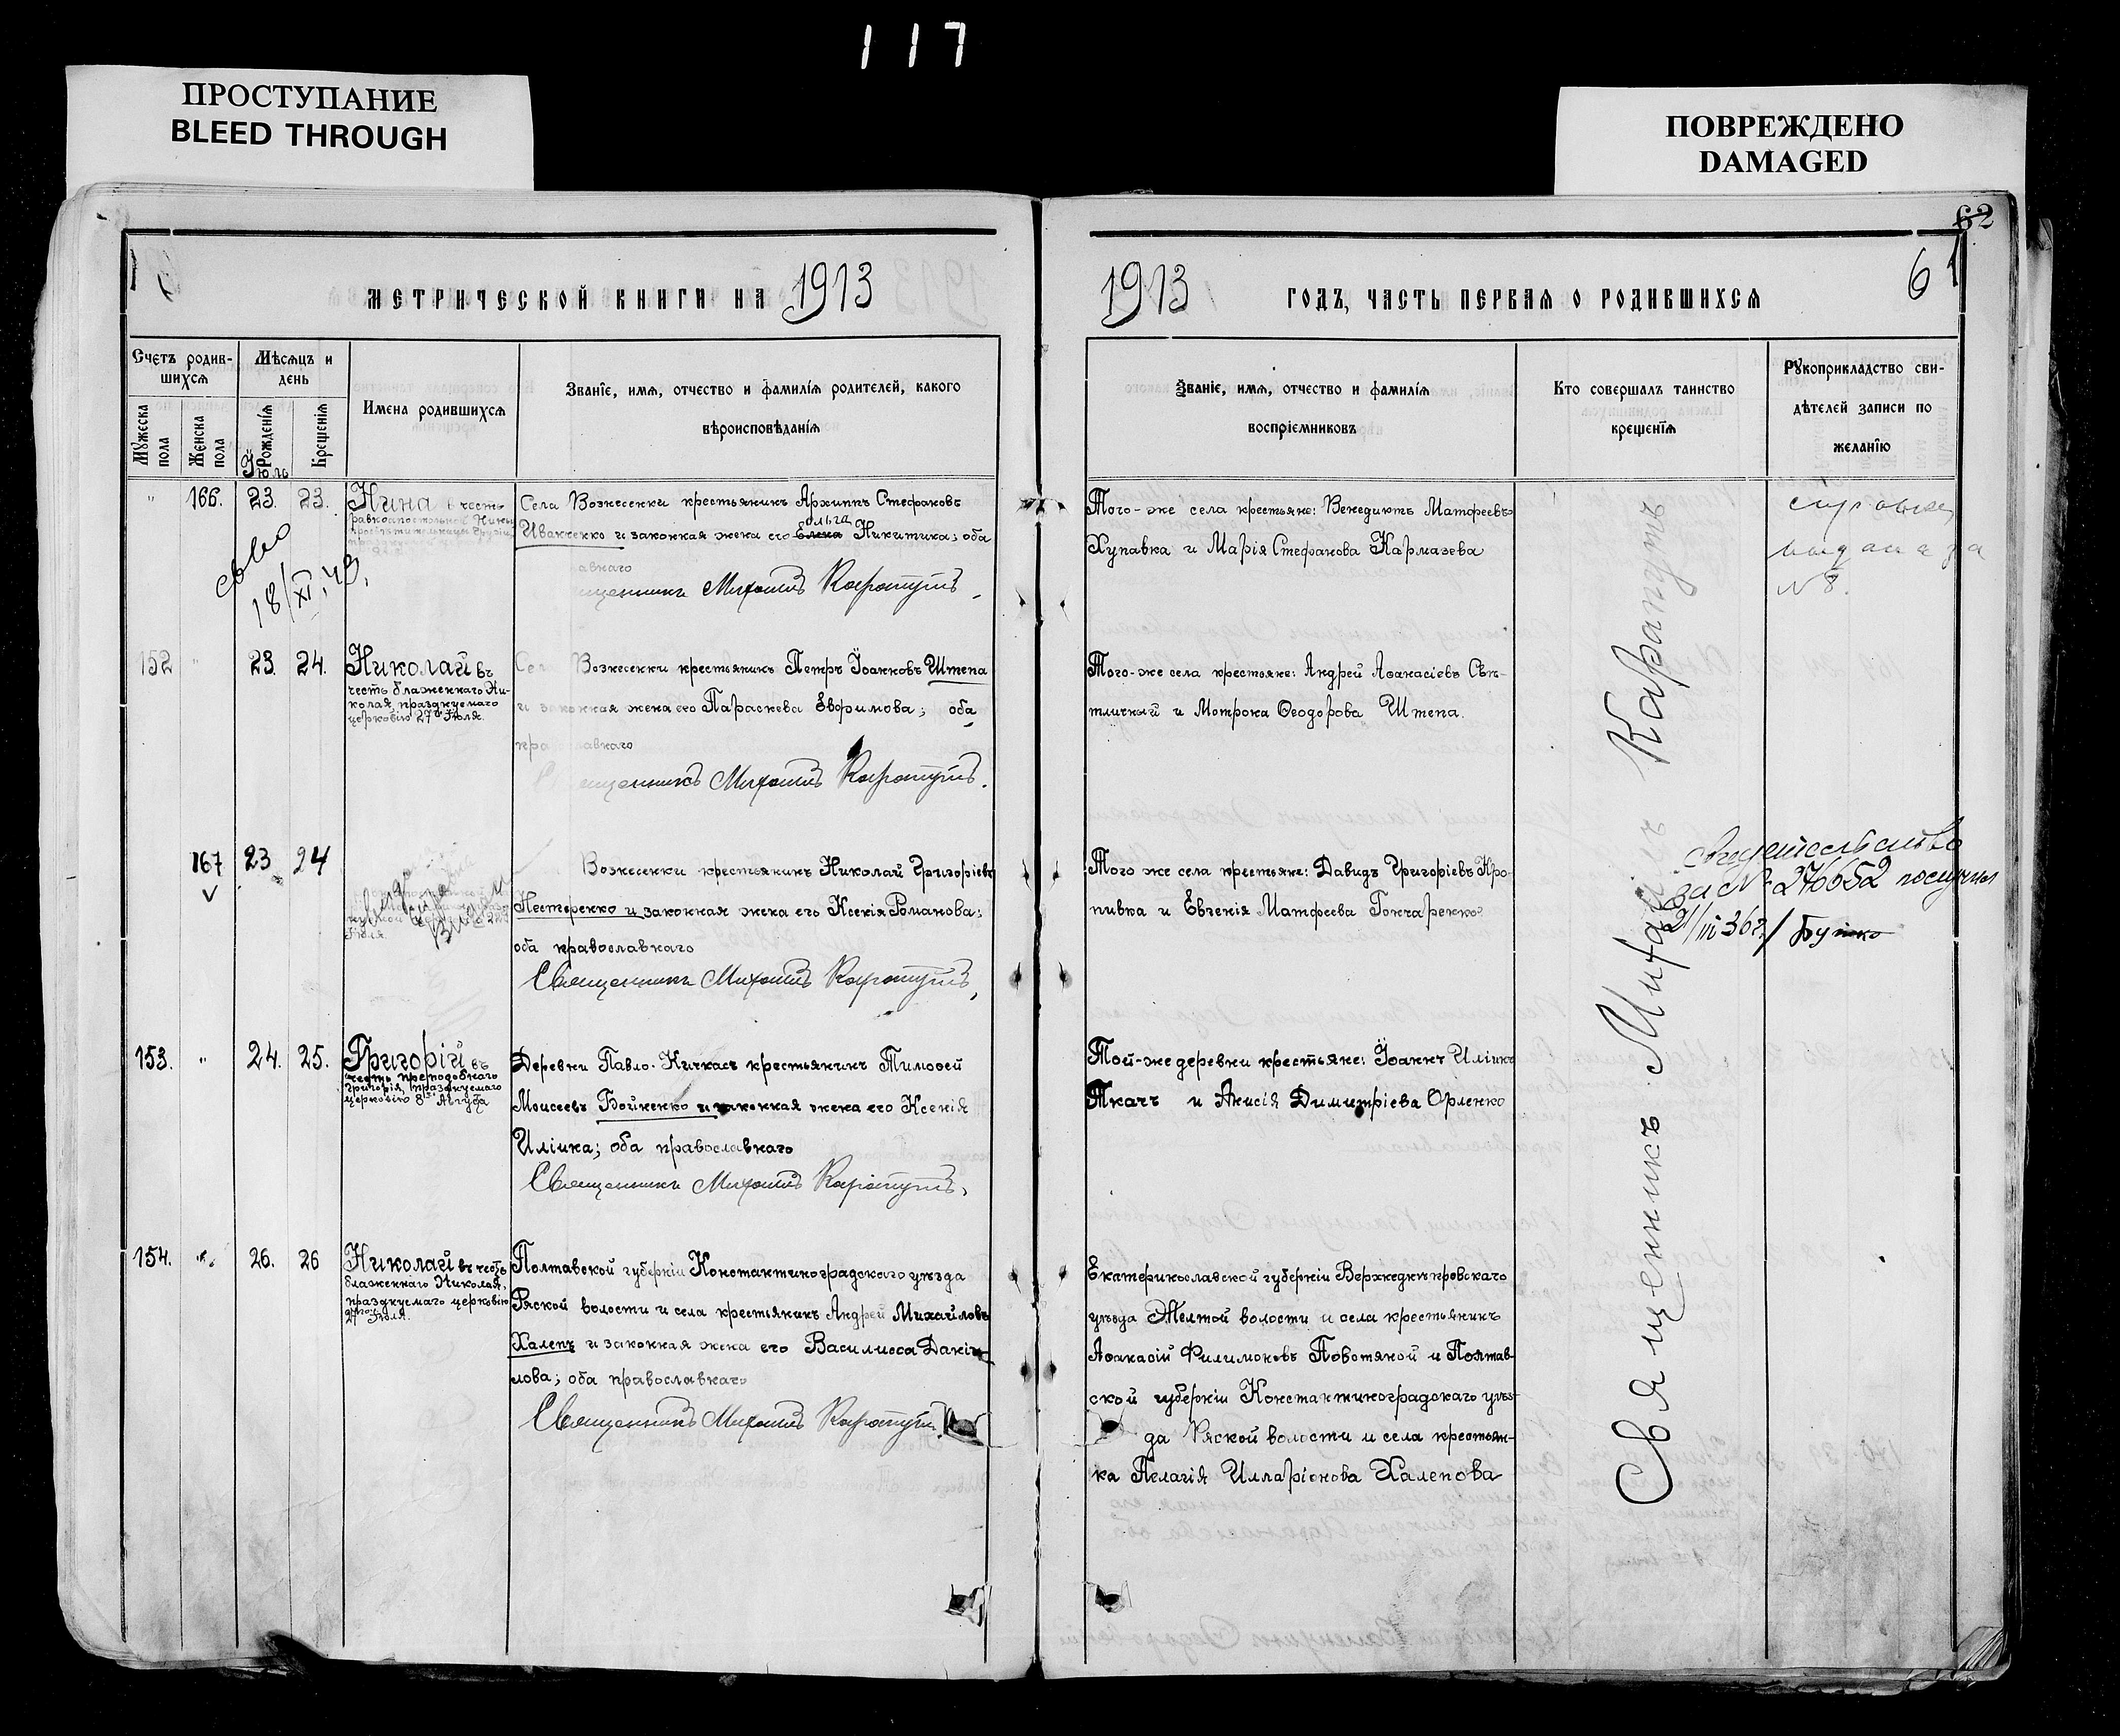 117
ПРОСТУПАНИЕ
BLEED THROUGH
ПОВРЕЖДЕНО
DAMAGED
62
МЕТРИЧЕСКОЙ КНИГИ НА 1913
Счетъ родив-
шихся
Мѣсяцъ и
день
Мужеска
пола
Женска
пола
Рожденія
Крещенія
Имена родившихся
Званіе, имя, отчество и фамилія родителей, какого
вѣроисповѣданія
Іюль
166. 23. 23. Нина в честь
равноапостольной Нины
Села Вознесенки крестьянинъ Архиппъ Стефановъ
Ольга
Иванченко и законная жена его Елена Никитина; оба
авнаго
Михаилъ Карапутъ
св-во
18/XI, 49.
152 23. 24. Николай въ
честь блаженнаго Ни-
колая, празднуемаго
церковію 27го Іюля.
Вознесенки крестьянинъ Петръ Іоанновъ Штепа
и законная жена его Параскева Евфимова; оба
Священникъ Михаилъ Карапутъ.
167 23 24
V
Іюля.
Вознесенки крестьянинъ Николай Григоріевъ
Нестеренко и законная жена его Ксенія Романова;
оба православнаго
Священникъ Михаилъ Карапутъ,
153. " 24. 25. Григорій въ
честь преподобнаго
Григорія, празднуемаго
церковію 8го Августа
Деревни Павло-Кичкасъ крестьянинъ Тимоѳей
Моисеевъ Бойченко и законная жена его Ксенія
Иліина; оба православнаго
Священникъ Михаилъ Карапутъ,
154. " 26. 26 Николай въ честь
блаженнаго Николая,
празднуемаго церковію
27го Іюля.
Полтавской губерніи Константиноградскаго уѣзда
Ряской волости и села крестьянинъ Андрей Михайловъ
Халепъ и законная жена его Василисса Даніи-
лова; оба православнаго
Священникъ Михаилъ Карапутъ
1913 ГОДЪ, ЧАСТЬ ПЕРВАЯ О РОДИВШИХСЯ
61
Званіе, имя, отчество и фамилія
воспріемниковъ
Кто совершалъ таинство
крещенія
Рукоприкладство сви-
дѣтелей записи по
желанію
Того-же села крестьяне: Венедиктъ Матфеевъ
Хупавка и Марія Стефанова Кармазева
справка
выдана за
№ 8.
Того-же села крестьяне: Андрей Аѳанасіевъ Свѣ-
тличный и Мотрона Ѳеодорова Штепа.
Того же села крестьяне: Давидъ Григоріевъ Кро-
пивка и Евгенія Матфеева Гончаренко
свидетельство
за № 276652 получил
21/III 36г. Бутко
Той-же деревни крестьяне: Іоаннъ Иліинъ
Ткачъ и Анисія Димитріева Орленко
Екатеринославской губерніи Верхнеднѣпровскаго
уѣзда Желтой волости и села крестьянинъ
Аѳанасій Филимоновъ Повотяной и Полтав-
ской губерніи Константиноградскаго уѣз-
да Ряской волости и села крестьян-
ка Пелагія Илларіонова Халепова
Священникъ Михаилъ Карапутъ